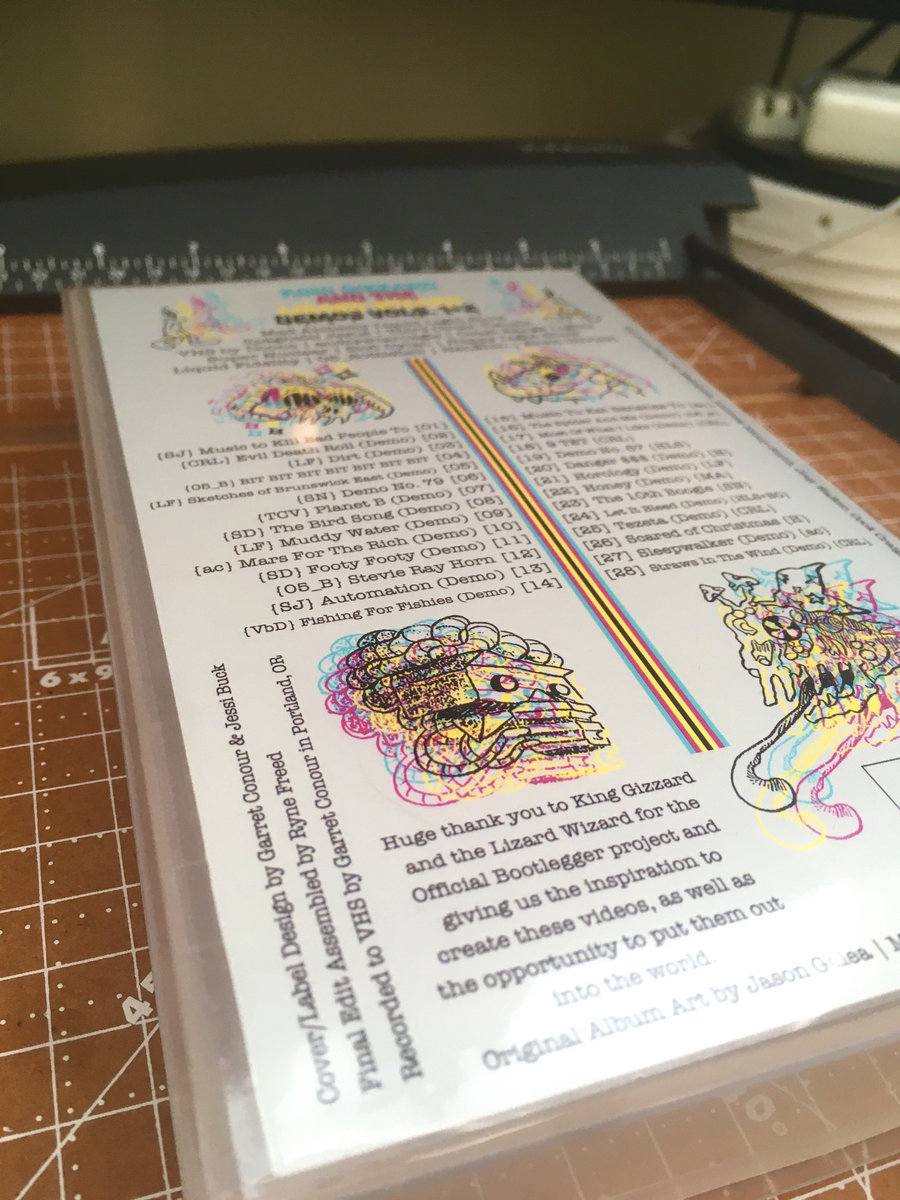 KING GIZZARD
AND THE
DEMOS VOLS. 1+2
VHS by
Liquid
{SJ} Music to Kill Bad People To [01]
{CRL} Evil Death Roll (Demo) [02]
{LF} Dirt (Demo) [03]
{05_B} BIT BIT BIT BIT BIT BIT BIT [04]
{LF} Sketches of Brunswick East (Demo) [05]
{SN} Demo No. 79 [06]
{TCV} Planet B (Demo) [07]
{SD} The Bird Song (Demo) [08]
{LF} Muddy Water (Demo) [09]
{ac} Mars For The Rich (Demo) [10]
{SD} Footy Footy (Demo) [11]
{05_B} Stevie Ray Horn [12]
{SJ} Automation (Demo) [13]
{VbD} Fishing For Fishies (Demo) [14]
[15] Music To Eat
[16]
[17]
[18] {CRL}
[19] Demo No. 67 {RLS}
[20] Danger $$$ (Demo) {H}
[21] Horology (Demo) {LF}
[22] Honey (Demo)
[23] The 10th Boogie {SN}
[24] Let It Bleed (Demo)
[25] Tezeta (Demo) {CRL}
[26] Scared of Christmas {H}
[27] Sleepwalker (Demo) {ac}
[28] Straws In The Wind (Demo) {CRL}
Cover/Label Design by Garret Conour & Jessi Buck
Final Edit Assembled by Ryne Freed
Recorded to VHS by Garret Conour in Portland, OR
Huge thank you to King Gizzard
and the Lizard Wizard for the
Official Bootlegger project and
giving us the inspiration to
create these videos, as well as
the opportunity to put them out
into the world.
Original Album Art by Jason Galea | M
6 x 9
45